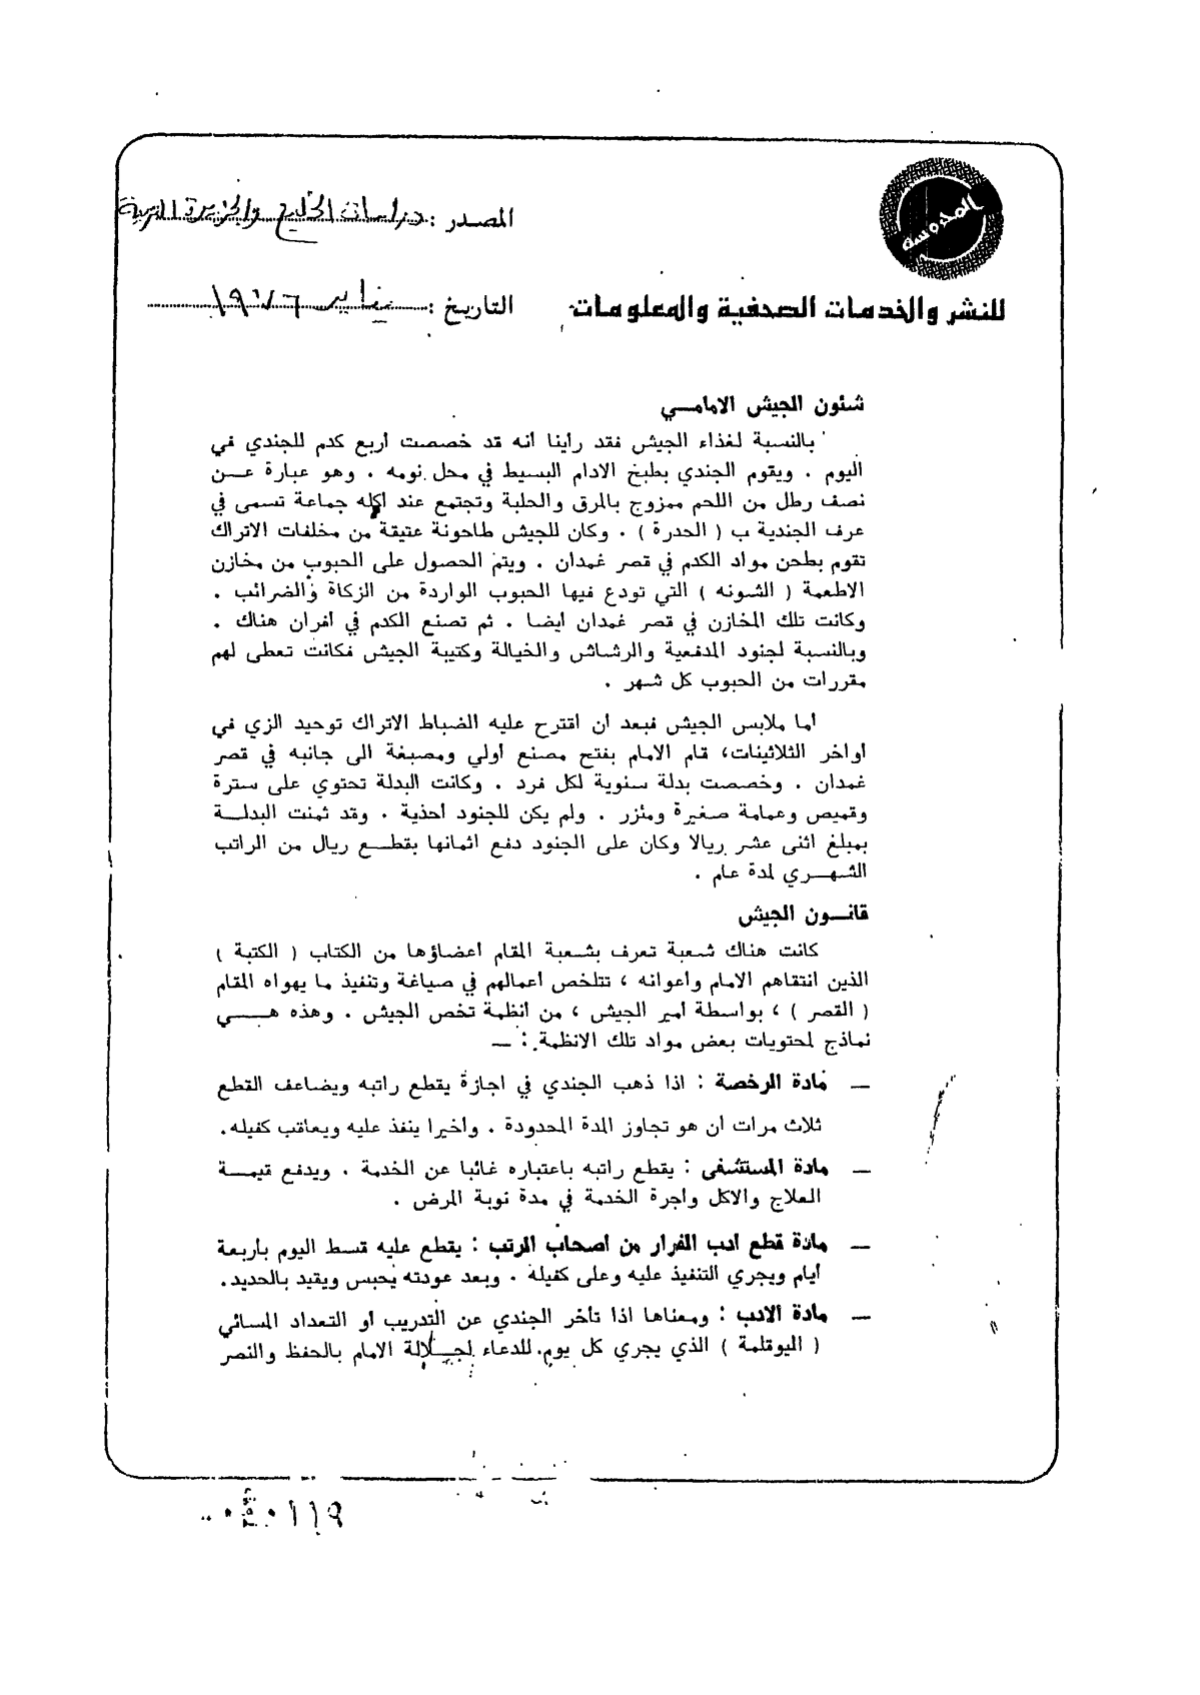 المحروسة
المصدر : دراسات الخليج والجزيرة العربية
للنشر والخدمات الصحفية والمعلومات
التاريخ : يناير ١٩٧٦
شئون الجيش الامامـي
بالنسبة لغذاء الجيش فقد راينا انه قد خصصت اربع كدم للجندي في
اليوم . ويقوم الجندي بطبخ الادام البسيط في محل نومه . وهو عبارة عـن
نصف رطل من اللحم ممزوج بالمرق والحلبة وتجتمع عند اكله جماعة تسمى في
عرف الجندية ب ( الحدرة ) . وكان للجيش طاحونة عتيقة من مخلفات الاتراك
تقوم بطحن مواد الكدم في قصر غمدان . ويتم الحصول على الحبوب من مخازن
الاطعمة ( الشونه ) التي تودع فيها الحبوب الواردة من الزكاة والضرائب .
وكانت تلك المخازن في قصر غمدان ايضا . ثم تصنع الكدم في افران هناك .
وبالنسبة لجنود المدفعية والرشاش والخيالة وكتيبة الجيش فكانت تعطى لهم
مقررات من الحبوب كل شهر .
اما ملابس الجيش فبعد ان اقترح عليه الضباط الاتراك توحيد الزي في
اواخر الثلاثينات، قام الامام بفتح مصنع اولي ومصبغة الى جانبه في قصر
غمدان . وخصصت بدلة سنوية لكل فرد . وكانت البدلة تحتوي على سترة
وقميص وعمامة صغيرة ومئزر . ولم يكن للجنود احذية . وقد ثمنت البدلـة
بمبلغ اثنى عشر ريالا وكان على الجنود دفع اثمانها بقطـع ريال من الراتب
الشهـري لمدة عام .
قانـون الجيش
كانت هناك شعبة تعرف بشعبة المقام اعضاؤها من الكتاب ( الكتبة )
الذين انتقاهم الامام واعوانه ، تتلخص اعمالهم في صياغة وتنفيذ ما يهواه المقام
( القصر ) ، بواسطة امير الجيش ، من انظمة تخص الجيش . وهذه هـي
نماذج لمحتويات بعض مواد تلك الانظمة : ــ
ــ مادة الرخصة : اذا ذهب الجندي في اجازة يقطع راتبه ويضاعف القطع
ثلاث مرات ان هو تجاوز المدة المحدودة . واخيرا ينفذ عليه ويعاقب كفيله.
ــ مادة المستشفى : يقطع راتبه باعتباره غائبا عن الخدمة . ويدفع قيمـة
العلاج والاكل واجرة الخدمة في مدة نوبة المرض .
ــ مادة قطع ادب الفرار من اصحاب الرتب : يقطع عليه قسط اليوم باربعة
أيام ويجري التنفيذ عليه وعلى كفيله . وبعد عودته يحبس ويقيد بالحديد.
ــ مادة الادب : ومعناها اذا تأخر الجندي عن التدريب او التعداد المسائي
( اليوقلمة ) الذي يجري كل يوم. للدعاء لجـلالة الامام بالحفظ والنصر